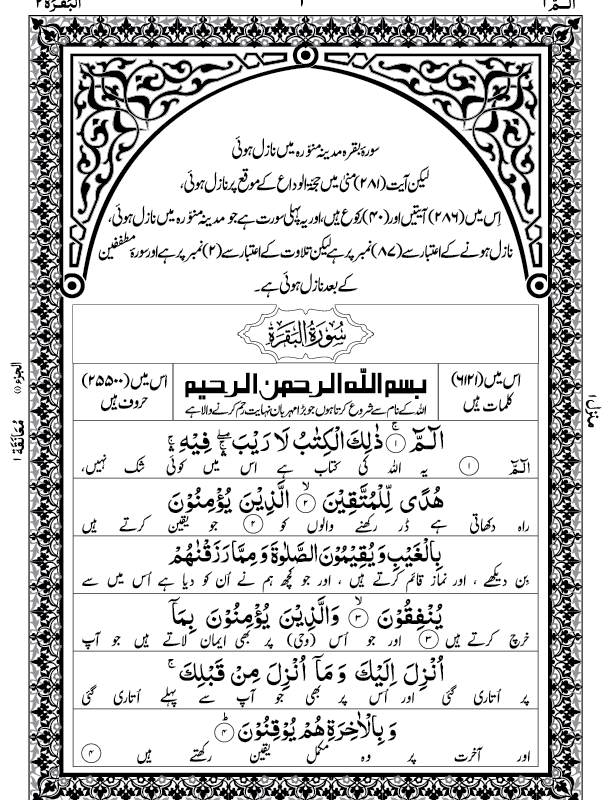 الٓـمّٓ ۱
۱
البقرة ۲
سورۂ بقرہ مدینہ منوّرہ میں نازل ہوئی
لیکن آیت (۲۸۱) منیٰ میں حجۃ الوداع کے موقع پر نازل ہوئی،
اِس میں (۲۸۶) آیتیں اور (۴۰) رکوع ہیں، اور یہ پہلی سورت ہے جو مدینہ منوّرہ میں نازل ہوئی،
نازل ہونے کے اعتبار سے (۸۷) نمبر پر ہے لیکن تلاوت کے اعتبار سے (۲) نمبر پر ہے اور سورۂ مطففین
کے بعد نازل ہوئی ہے۔
سُوْرَةُ الْبَقَرَةِ
اس میں (۶۱۲۱) کلمات ہیں
بسم الله الرحمن الرحيم
اللہ کے نام سے شروع کرتا ہوں جو بڑا مہربان نہایت رحم کرنے والا ہے
اس میں (۲۵۵۰۰) حروف ہیں
الٓـمّٓ ۚ﴿۱﴾ ذٰلِكَ الْكِتٰبُ لَا رَيْبَ ۛۖۚ فِيْهِ ۛۚ
الٓمّٓ ۱ یہ اللہ کی کتاب ہے اس میں کوئی شک نہیں،
هُدًى لِّلْمُتَّقِيْنَ ۙ﴿۲﴾ الَّذِيْنَ يُؤْمِنُوْنَ
راہ دکھاتی ہے ڈر رکھنے والوں کو ۲ جو یقین کرتے ہیں
بِالْغَيْبِ وَيُقِيْمُوْنَ الصَّلٰوةَ وَمِمَّا رَزَقْنٰهُمْ
بِن دیکھے، اور نماز قائم کرتے ہیں، اور جو کچھ ہم نے اُن کو دیا ہے اُس میں سے
يُنْفِقُوْنَ ۙ﴿۳﴾ وَالَّذِيْنَ يُؤْمِنُوْنَ بِمَآ
خرچ کرتے ہیں ۳ اور جو اُس (وحی) پر بھی ایمان لاتے ہیں جو آپ
اُنْزِلَ اِلَيْكَ وَمَآ اُنْزِلَ مِنْ قَبْلِكَ ۚ
پر اُتاری گئی اور اُس پر بھی جو آپ سے پہلے اُتاری گئی
وَبِالْاٰخِرَةِ هُمْ يُوْقِنُوْنَ ؕ﴿۴﴾
اور آخرت پر وہ مکمل یقین رکھتے ہیں ۴
منزل ۱
الجزء (۱)
مُعَانَقَة ۱